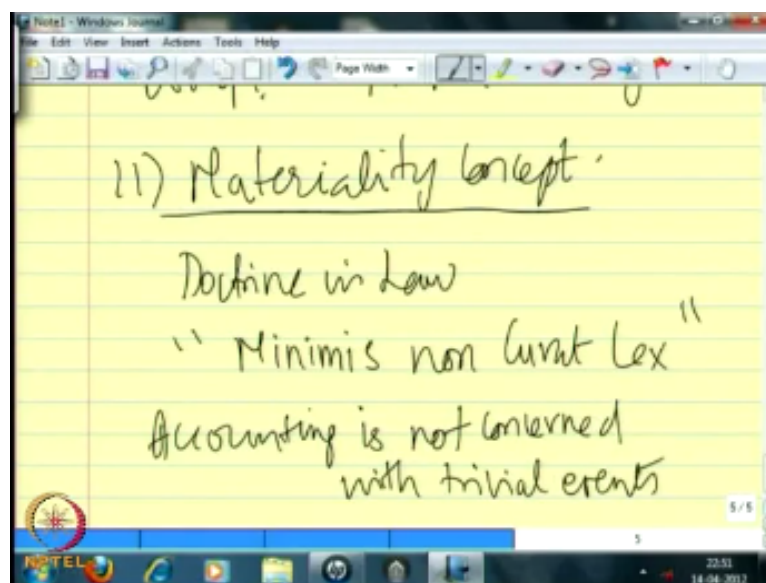 Note1 - Windows Journal
File Edit View Insert Actions Tools Help
Page Width
11) Materiality Concept.
Doctrine in Law
"Minimis non Curat Lex"
Accounting is not concerned
with trivial events
5/5
5
NPTEL
22:51
14-04-2012